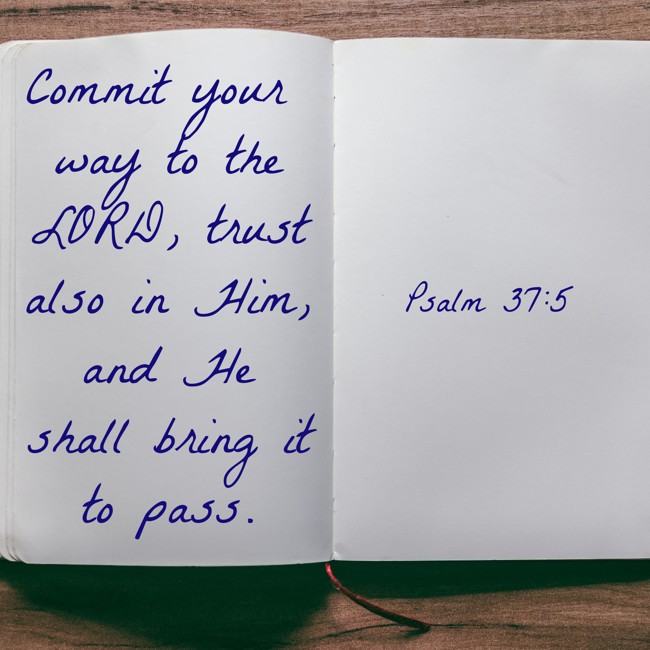 Commit your
way to the
LORD, trust
also in Him,
and He
shall bring it
to pass.
Psalm 37:5